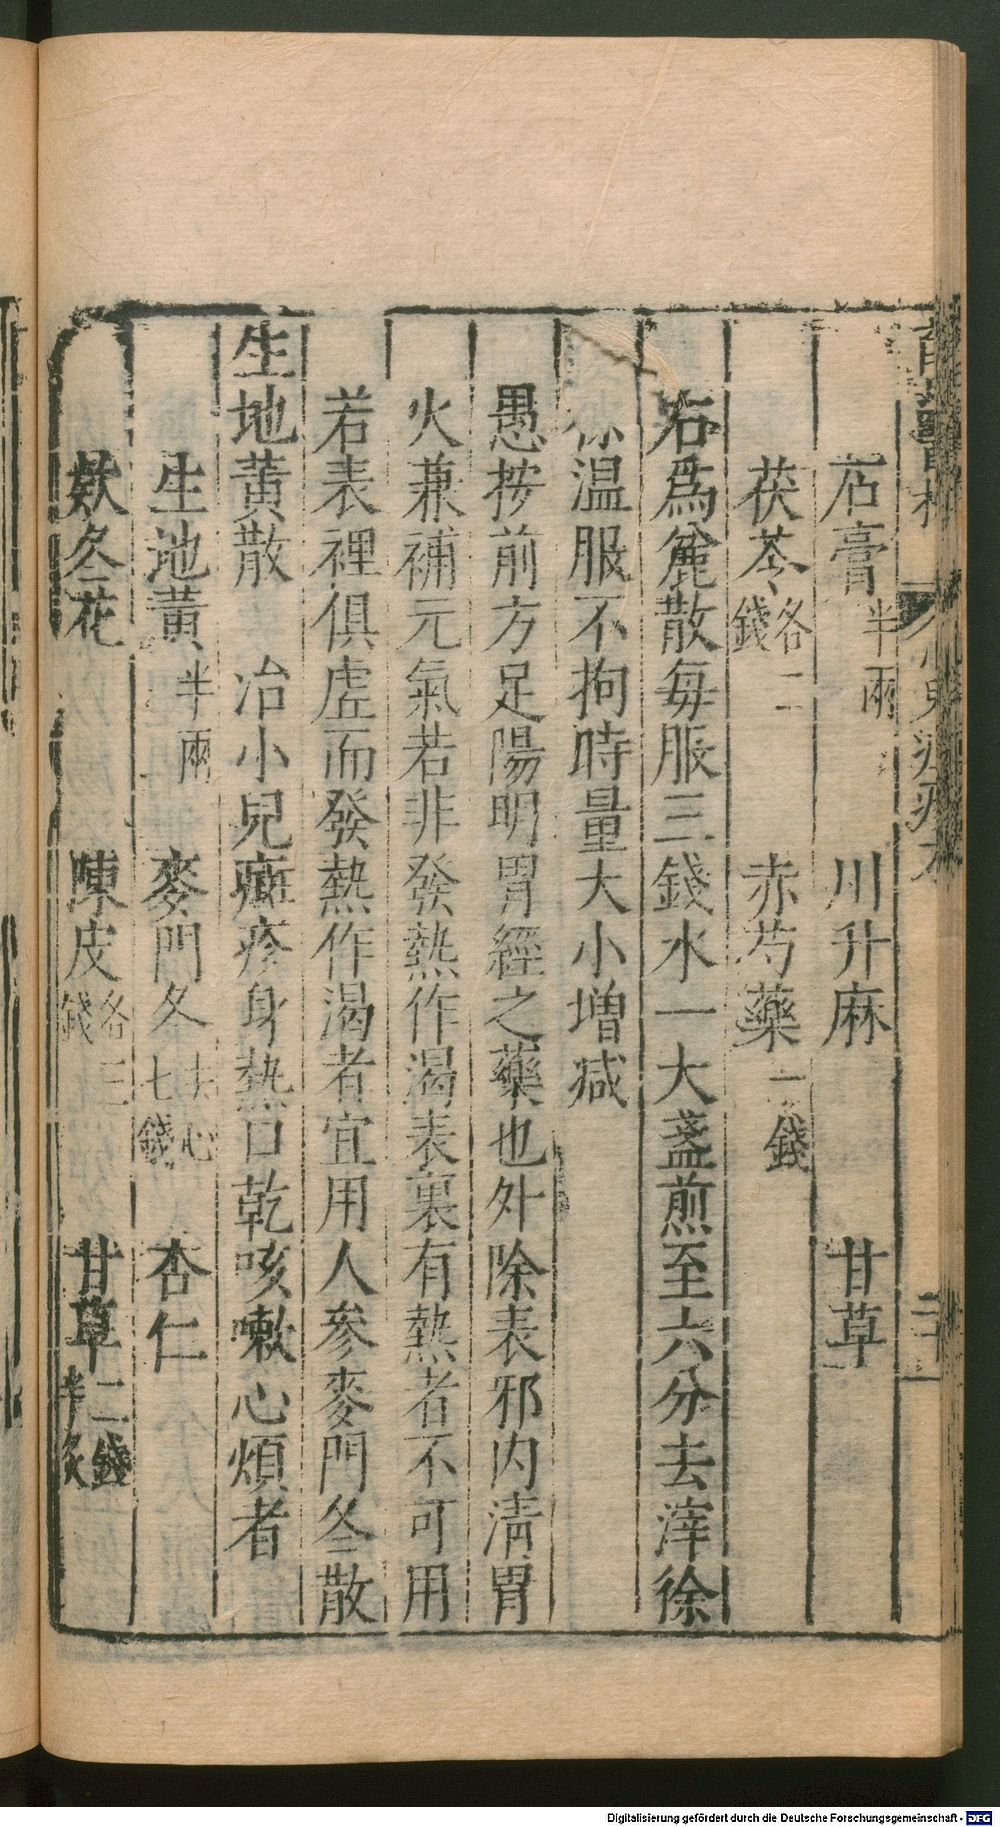 石膏半兩　川升麻　甘草
茯苓各二錢　赤芍藥一錢
右爲麄散毎服三錢水一大盞煎至六分去滓徐
徐温服不拘時量大小増減
愚按前方足陽明胃經之藥也外除表邪内淸胃
火兼補元氣若非發熱作渴表裏有熱者不可用
若表裡俱虚而發熱作渴者宜用人參麥門冬散
生地黄散　治小兒癍疹身熱口乾咳嗽心煩者
生地黄半兩　麥門冬去心七錢　杏仁
欵冬花　陳皮各三錢　甘草二錢半炙
Digitalisierung gefördert durch die Deutsche Forschungsgemeinschaft - DFG